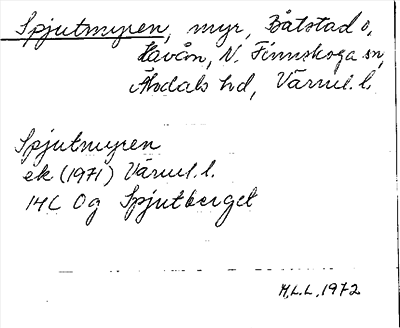 Spjutmyren, myr, Båtstad o.
Havån, N. Finnskoga sn,
Älvdals hd, Värml. l.
Spjutmyren
ek (1971) Värml. l.
14C 0g Spjutberget
M.L.L., 1972